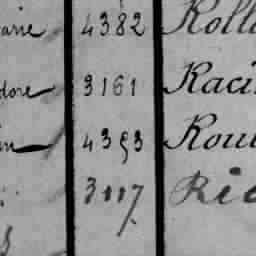 arie 4382 Roll
dore 3161 Raci
in 4353 Rou
3117 Ric